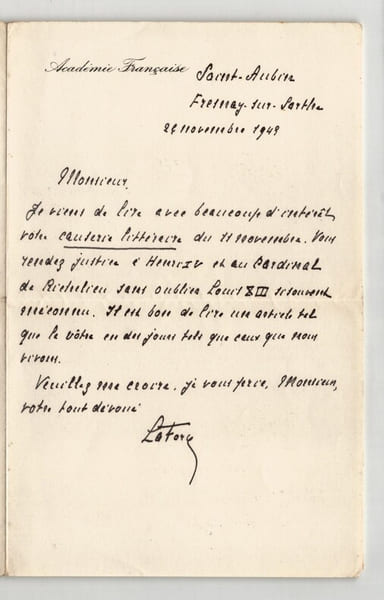 Académie Française
Saint-Aubin
Fresnay-sur-Sarthe
novembre 1949
Monsieur,
Je viens de lire avec beaucoup d'intérêt
votre causerie littéraire du 11 novembre. Vous
rendez justice à Henri IV et au Cardinal
de Richelieu sans oublier Louis XIII si souvent
méconnu. Il est bon de lire un article tel
que le vôtre en des jours tels que ceux que nous
vivons.
Veuillez me croire, je vous prie, Monsieur,
votre tout dévoué
La Force